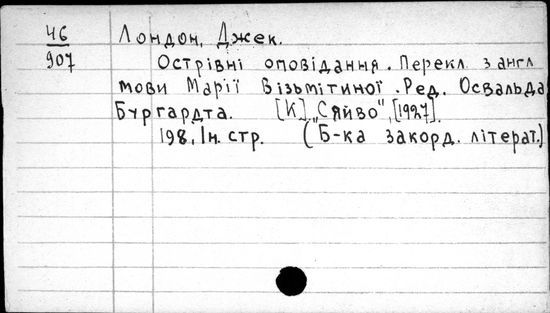 46
907
Лондон, Джек.
Острівні оповідання. Перекл. з англ
мови Марії Візьмітиної. Ред. Освальда
Бургардта. [К] „Сяйво", [1927].
198, Ін. стр. (Б-ка закорд. літерат.)